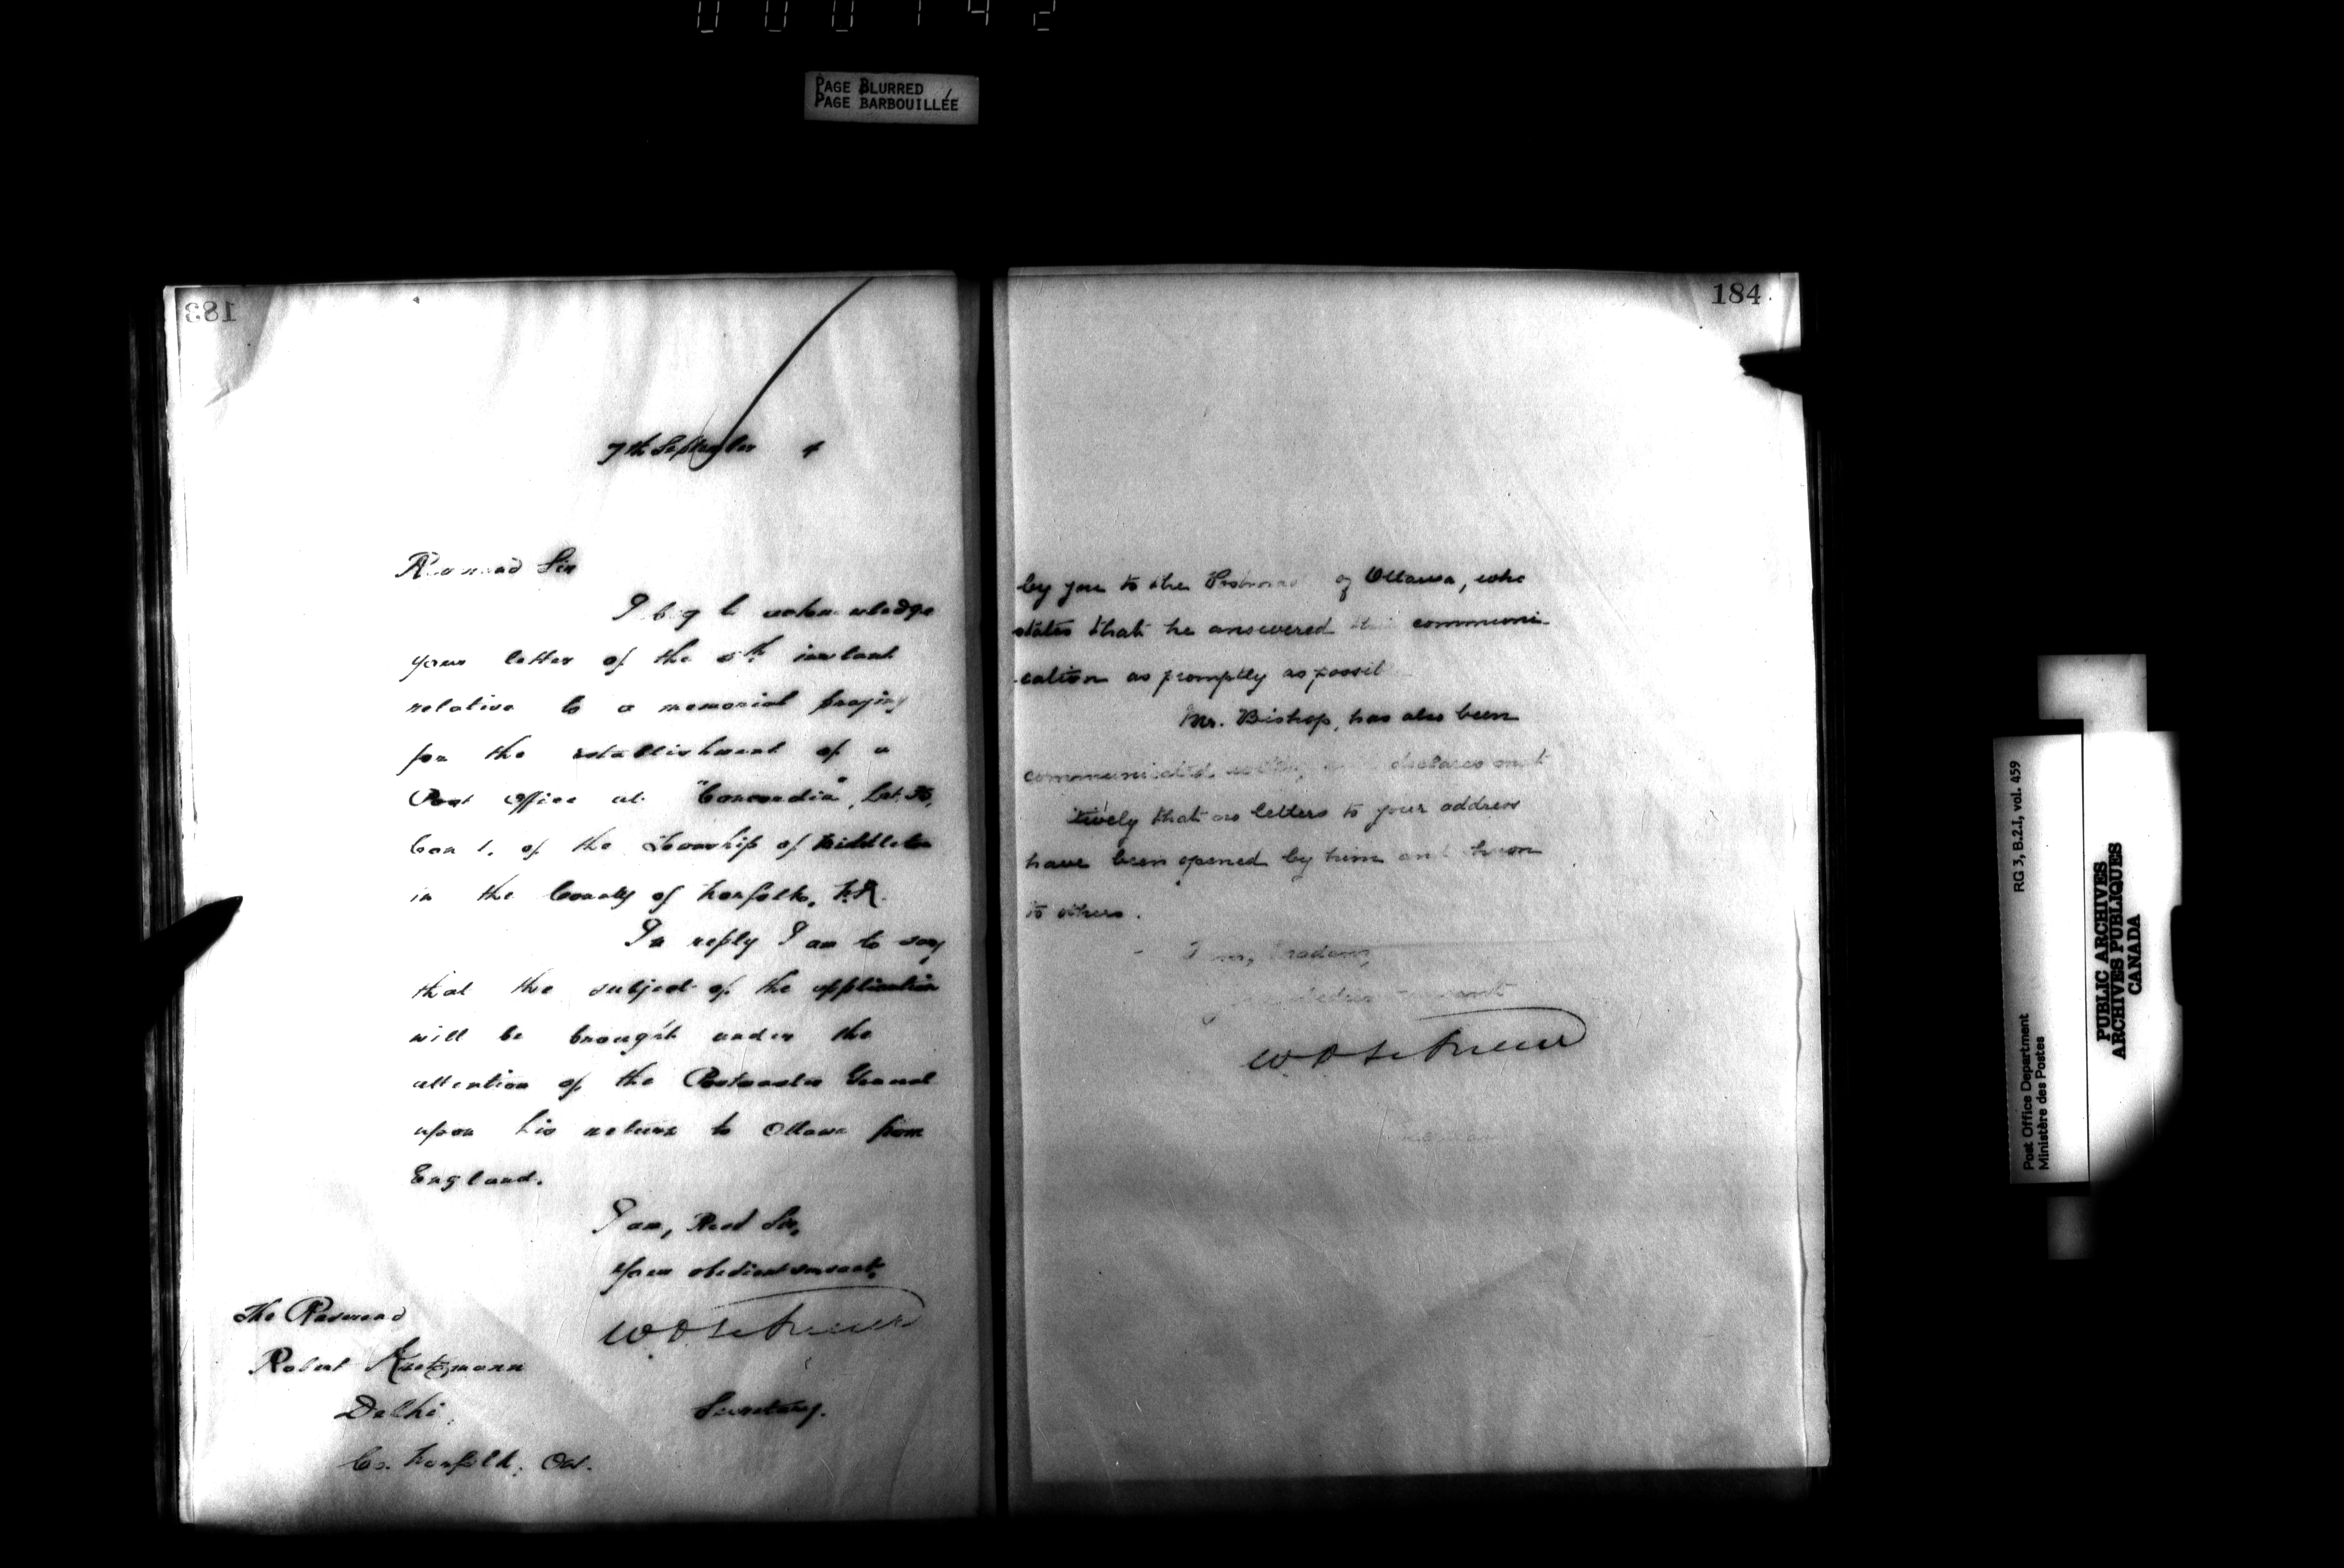 000142
PAGE BLURRED
PAGE BARBOUILLÉE
183
7th September 4
Reverend Sir
I beg to acknowledge
your letter of the 5th instant
relative to a memorial praying
for the establishment of a
Post Office at "Concordia", Lot 36,
Con 1. of the Township of Middleton
in the County of Norfolk, N.R.
In reply I am to say
that the subject of the application
will be brought under the
attention of the Postmaster General
upon his return to Ottawa from
England.
I am, Revd Sir,
Your obedient servant,
Secretary.
The Reverend
Robert Kretzmann
Delhi,
Co. Norfolk, Ont.
184
by you to the Postmas of Ottawa, who
states that he answered communi-
cation as promptly as possib
Mr. Bishop, has also been
communicated declares
tively that no letters to your address
have been opened by him and
to others.
I am, Madam,
servant
RG 3, B.2.1, vol. 459
Post Office Department
Ministère des Postes
PUBLIC ARCHIVES
ARCHIVES PUBLIQUES
CANADA